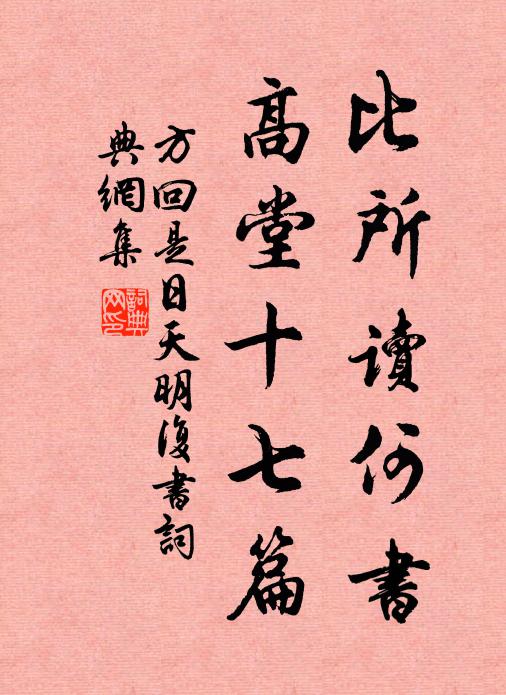 比所讀何書
高堂十七篇
方回是日天明復書詞
典網集
詞典网印